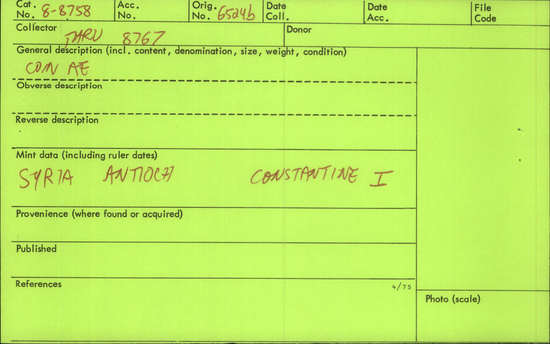 Cat. No. 8-8758 Acc. No. Orig. No. 6524b Date Coll. Date Acc. File Code
Collector THRU 8767 Donor
General description (incl. content, denomination, size, weight, condition)
COIN AE
Obverse description
Reverse description
Mint data (including ruler dates)
SYRIA ANTIOCH CONSTANTINE I
Provenience (where found or acquired)
Published
References 4/75
Photo (scale)